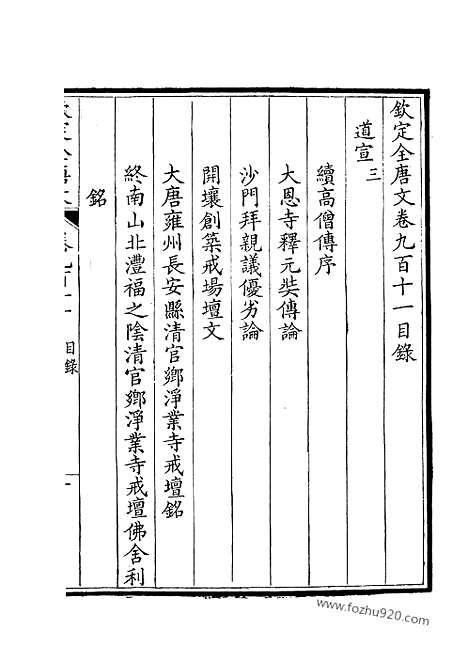 欽定全唐文卷九百十一目錄
道宣三
續高僧傳序
大恩寺釋元奘傳論
沙門拜親議優劣論
開壤創築戒場壇文
大唐雍州長安縣清官鄉淨業寺戒壇銘
終南山北灃福之陰清官鄉淨業寺戒壇佛舍利
銘
目錄
一
www.fozhu920.com